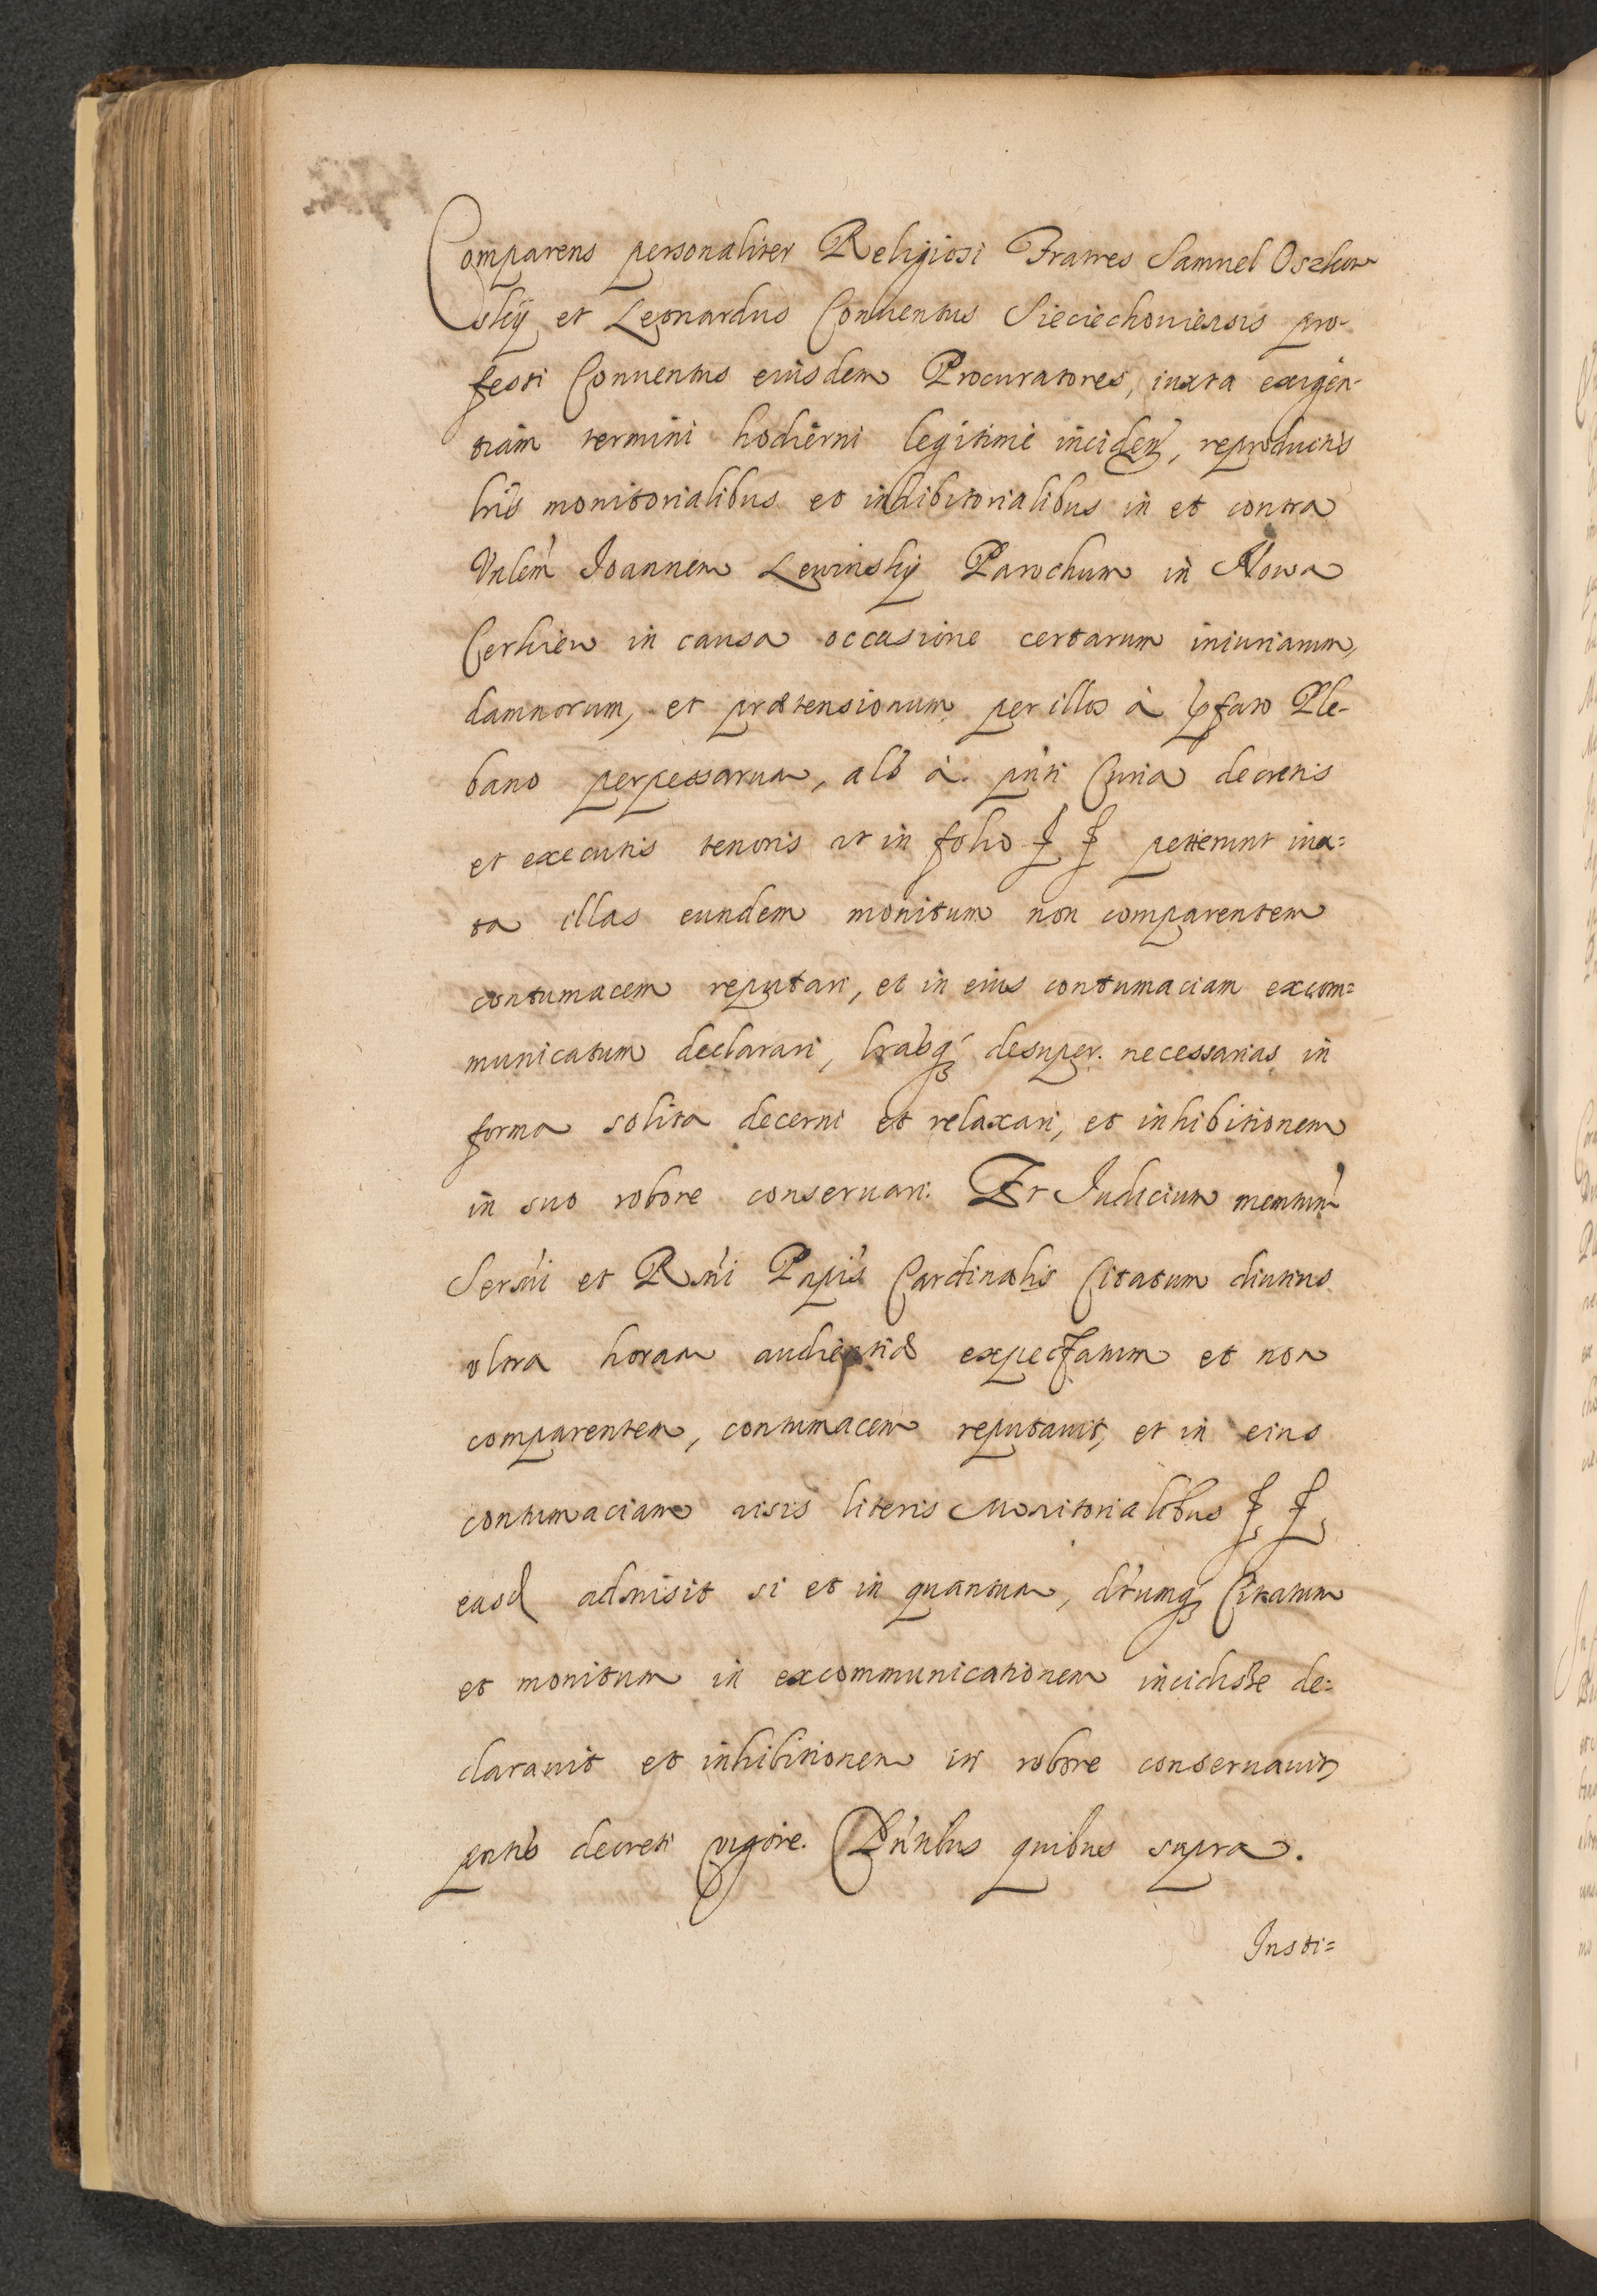 Comparens personaliter Religiosi Fratres Samuel Oszkow
skij et Leonardus Conuentus Sieciechouiensis pro-
fessi Conuentus eiusdem Procuratores, iuxta exigen-
tiam termini hodierni legitimè inciden, reproductis
lris monitorialibus et inhibitorialibus in et contra
Vnlem Joannem Lewinskij Parochum in Nowa
Cerkiew in causa occasione certarum iniuriarum,
damnorum, et prætensionum per illos à præfato Ple-
bano perpessarum, alb à pnti Curia decretis
et executis tenoris ut in folio ff petierunt iux=
ta illas eundem monitum non comparentem
contumacem reputari, et in eius contumaciam excom=
municatum declarari, lrasq desuper necessarias in
forma solita decerni et relaxari, et inhibitionem
in suo robore conseruari. Et Judicium
Sermi et Rmi Cardinalis Citatum diutius
vltra horam audientiæ expectatum et non
comparentem, contumacem reputauit, et in eius
contumaciam visis literis Monitorialibus ff
easd admisit si et in quantum, dtumq Citatum
et monitum in excommunicationem incidisse de=
clarauit et inhibitionem in robore conseruauit,
pntis decreti vigore. Pntibus quibus supra.
Insti=